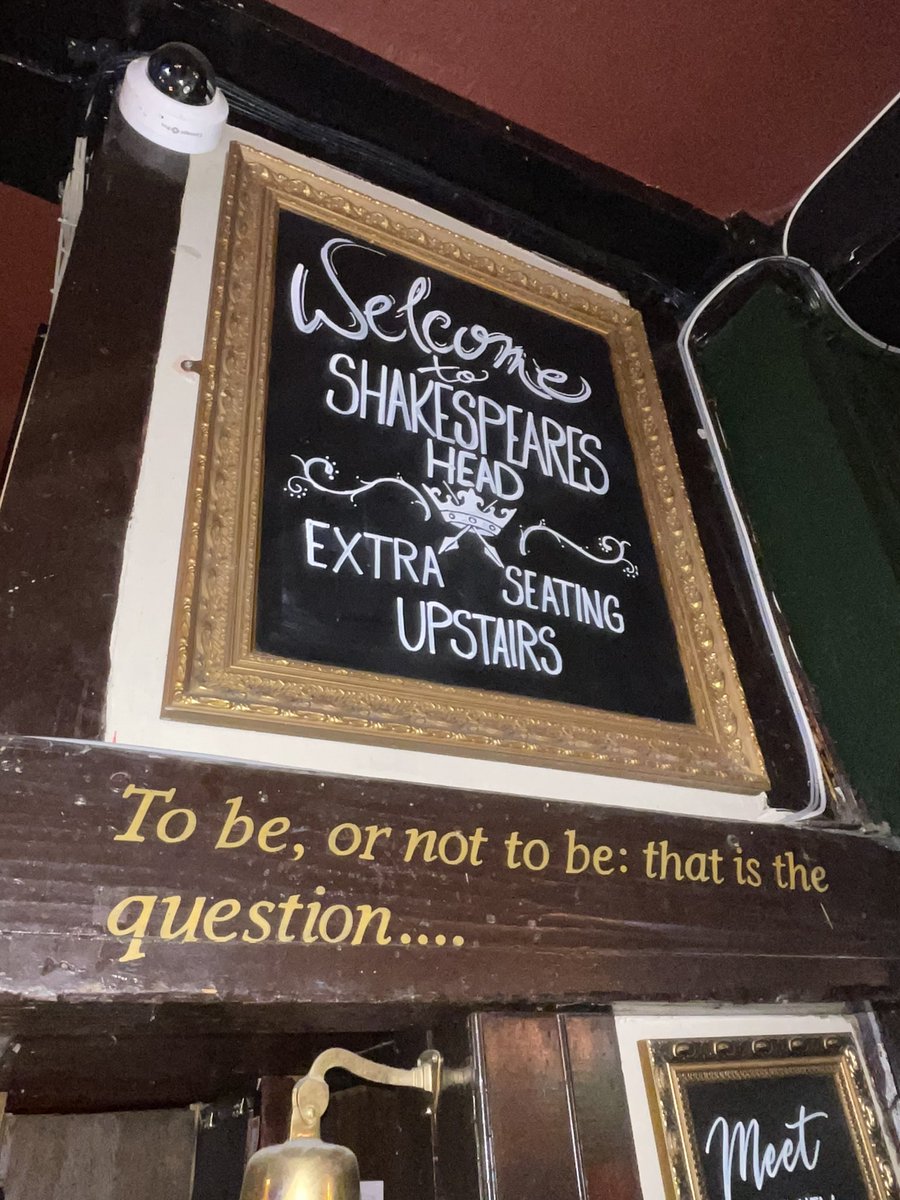 Welcome
to
SHAKESPEARES
HEAD
EXTRA SEATING
UPSTAIRS
To be, or not to be: that is the
question....
Meet